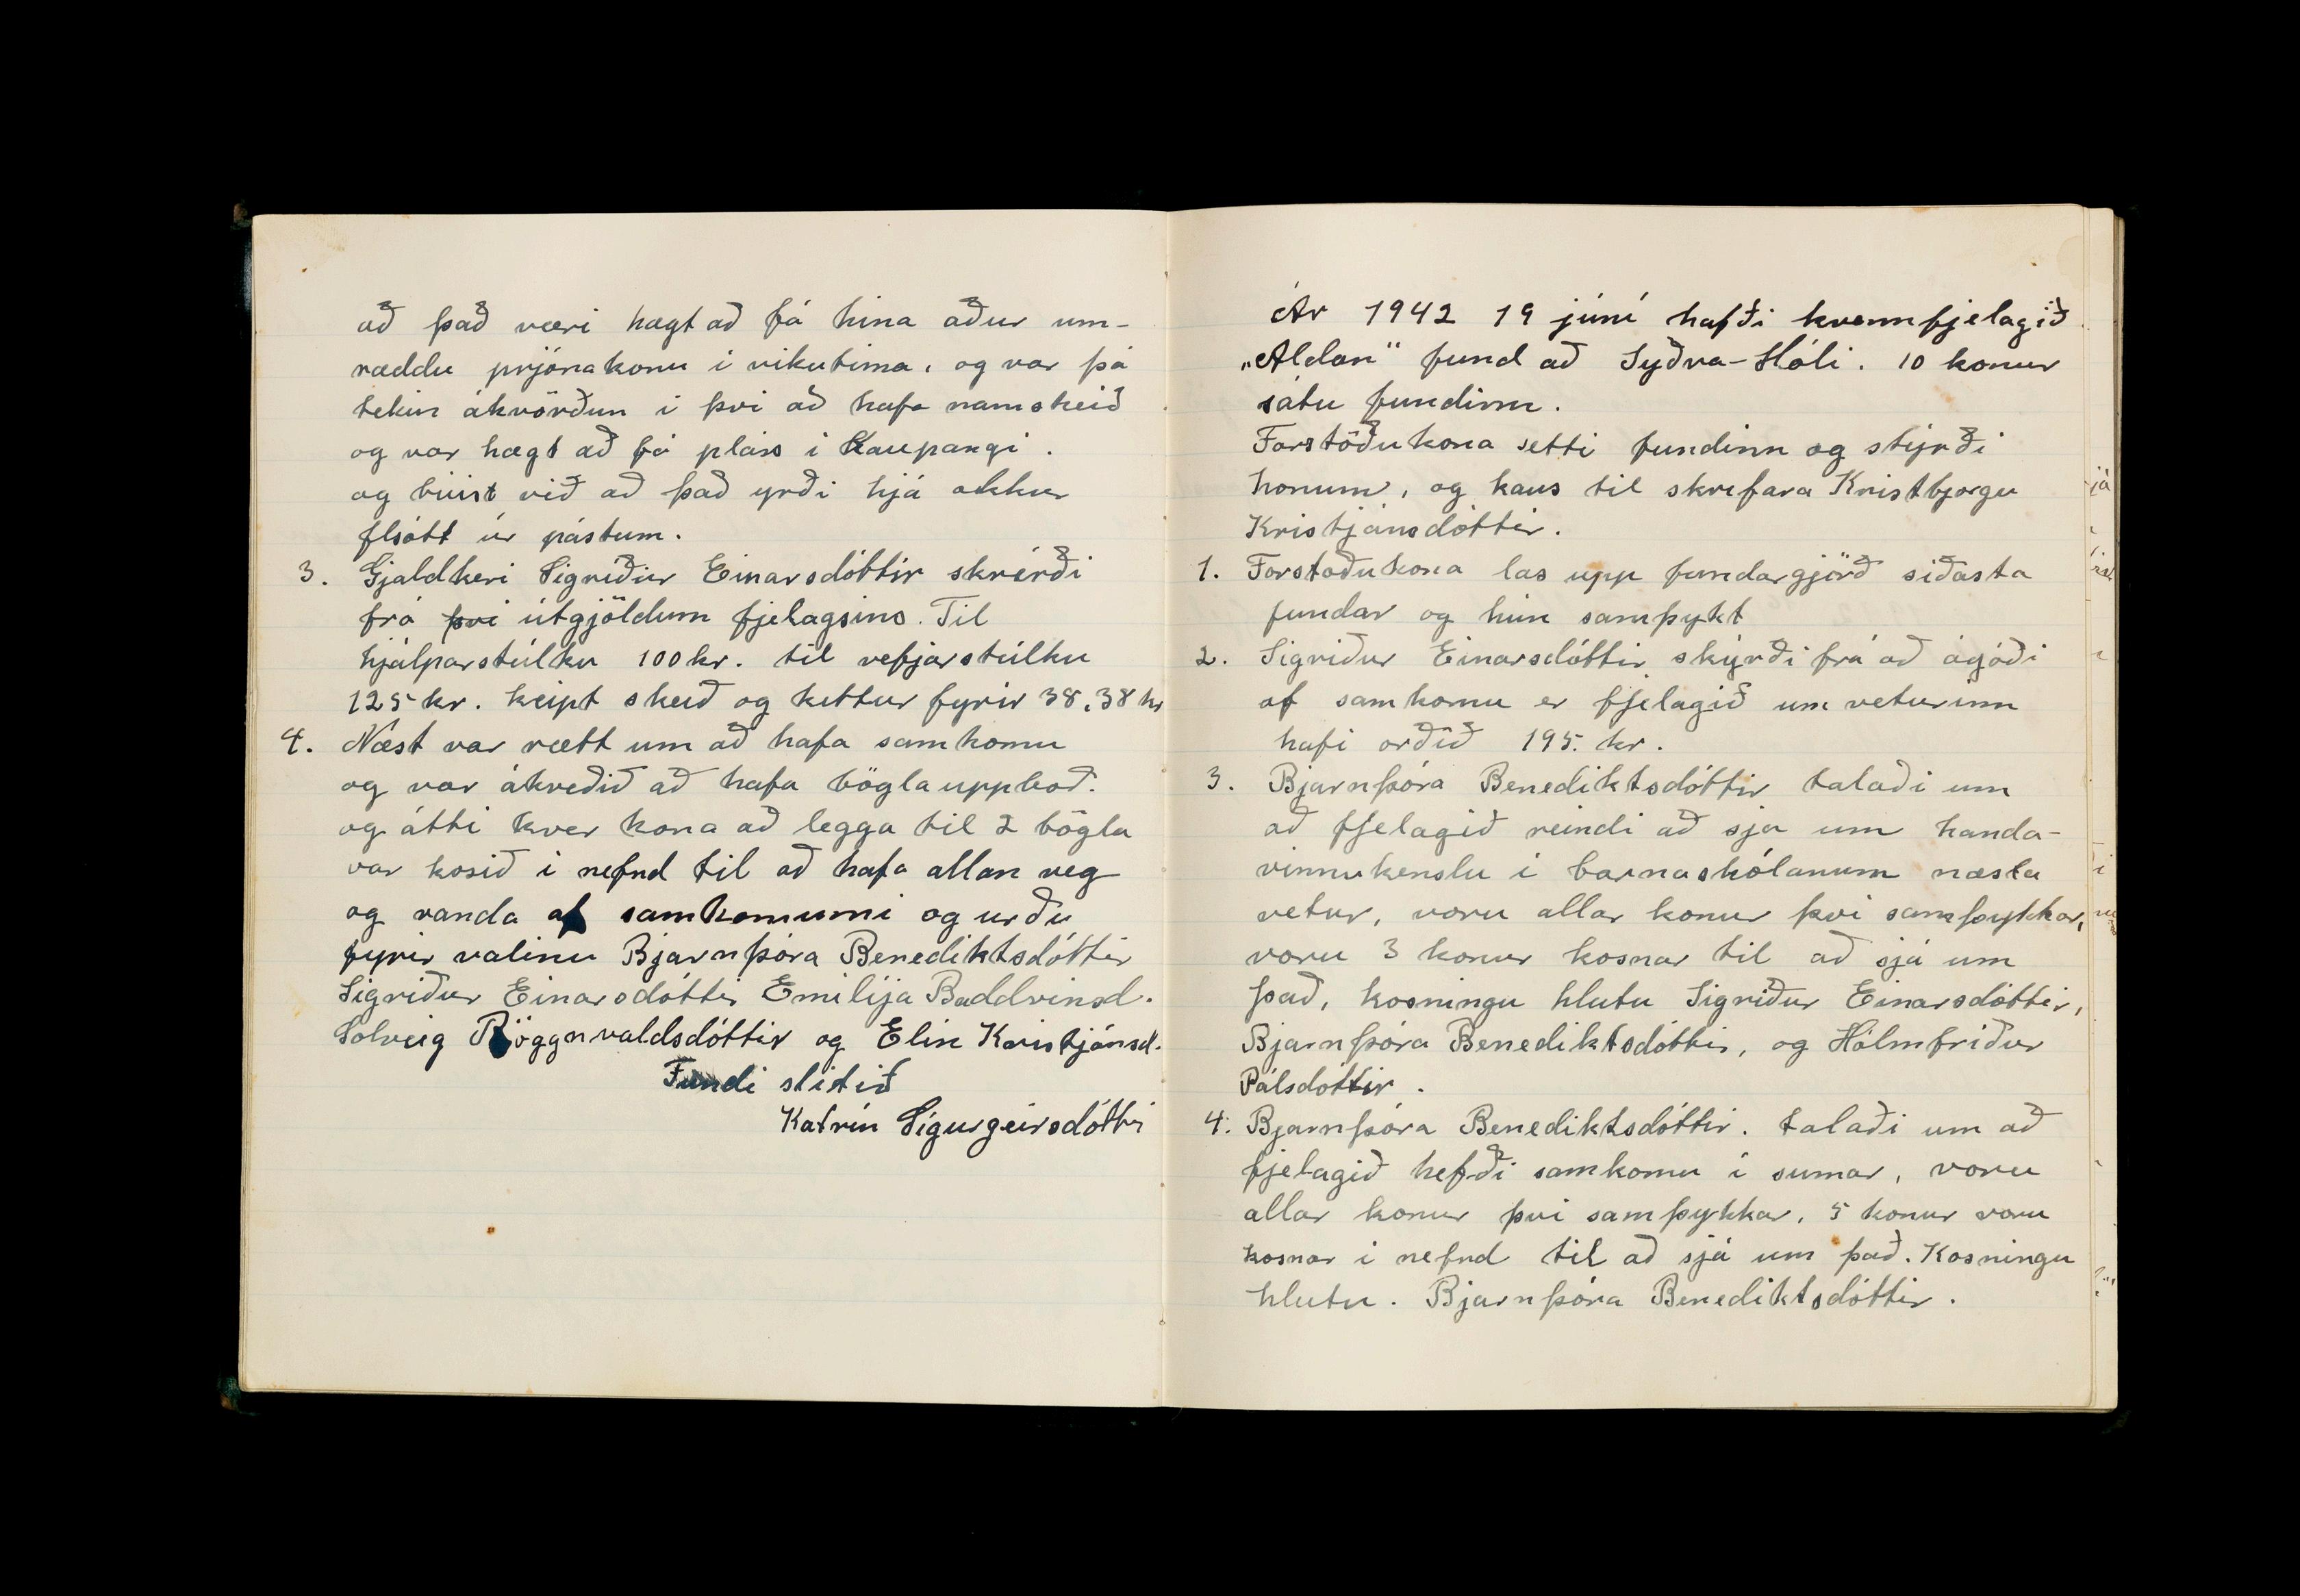 að það væri hægt að fá hina aður um-
ræddu prjónakonu i vikutima, og var þá
tekin ákvörðun i þvi að hafa namskeið
og var hægt að fá pláss i Kaupangi.
og búist við að það yrði hjá okkur
fljótt úr páskum.
3. Gjaldkeri Sigríður Einarsdóttir skrérði
frá þvi útgjöldum fjelagsins. Til
hjálparstúlku 100 kr. til vefjarstúlku
125 kr. keipt skeið og kettur fyrir 38,38 kr
4. Næst var rætt um að hafa samkomu
og var ákveðið að hafa bögla uppboð.
og átti hver kona að legga til 2 bögla
var kosið i nefnd til að hafa allan veg
og vanda af samkomunni og urðu
fyrir valinu Bjarnþóra Benediktsdóttir
Sigriður Einarsdóttir Emilija Baddvinsd.
Solveig Röggnvaldsdóttir og Elin Kristjánsd.
Fundi slitið
Katrín Sigurgeirsdóttir
Ár 1942 19 júní hafði kvennfjelagið
„Aldan" fund að Syðra-Hóli. 10 konur
sátu fundinn.
Forstöðukona setti fundinn og stýrði
honum, og kaus til skrifara Kristbjorgu
Kristjánsdóttir.
1. Forstoðukona las upp fundargjörð siðasta
fundar og hún samþykt
2. Sigriður Einarsdóttir skýrði frá að ágóði
af samkomu er fjelagið um veturinn
hafi orðið 195. kr.
3. Bjarnþóra Benediktsdóttir talaði um
að fjelagið reindi að sja um handa-
vinnukenslu i barnaskólanum næsta
vetur, voru allar konur þvi samþykkar,
voru 3 konur kosnar til að sjá um
það, kosningu hlutu Sigriður Einarsdóttir,
Bjarnþóra Benediktsdóttir, og Hólmfríður
Pálsdóttir.
4. Bjarnþóra Benediktsdóttir. talaði um að
fjelagið hefði samkomu i sumar, voru
allar konur þvi samþykkar. 5 konur voru
kosnar i nefnd til að sjá um það. Kosningu
hlutu. Bjarnþóra Benediktsdóttir.